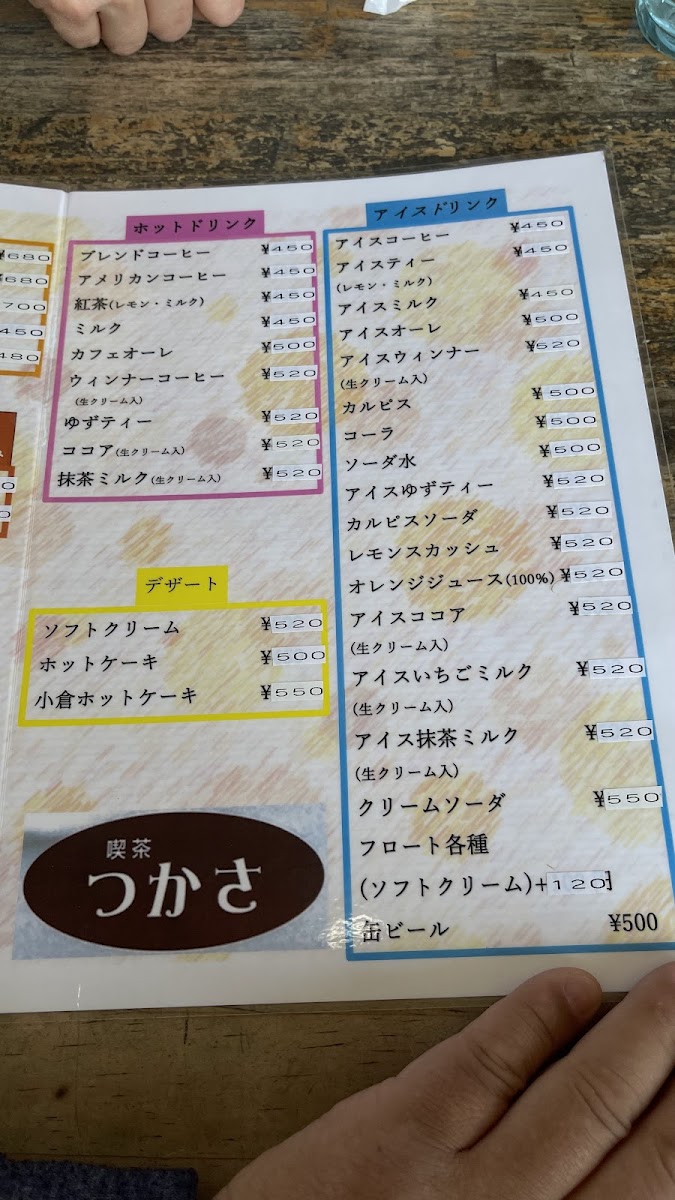 ¥680
¥680
700
450
480
0
0
ホットドリンク
ブレンドコーヒー ¥450
アメリカンコーヒー ¥450
紅茶(レモン・ミルク) ¥450
ミルク ¥450
カフェオーレ ¥500
ウィンナーコーヒー ¥520
(生クリーム入)
ゆずティー ¥520
ココア(生クリーム入) ¥520
抹茶ミルク(生クリーム入) ¥520
デザート
ソフトクリーム ¥520
ホットケーキ ¥500
小倉ホットケーキ ¥550
喫茶
つかさ
アイスドリンク
アイスコーヒー ¥450
アイスティー ¥450
(レモン・ミルク)
アイスミルク ¥450
アイスオーレ ¥500
アイスウィンナー ¥520
(生クリーム入)
カルピス ¥500
コーラ ¥500
ソーダ水 ¥500
アイスゆずティー ¥520
カルピスソーダ ¥520
レモンスカッシュ ¥520
オレンジジュース(100%) ¥520
アイスココア ¥520
(生クリーム入)
アイスいちごミルク ¥520
(生クリーム入)
アイス抹茶ミルク ¥520
(生クリーム入)
クリームソーダ ¥550
フロート各種
(ソフトクリーム)+120
缶ビール ¥500